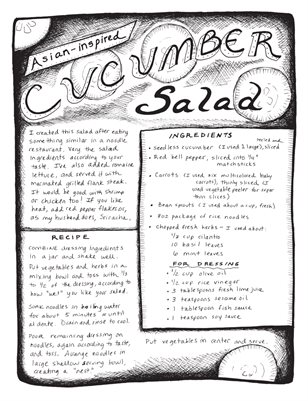 Asian-inspired
CUCUMBER
Salad
I created this salad after eating
something similar in a noodle
restaurant. Vary the salad
ingredients according to your
taste. I've also added romaine
lettuce, and served it with
marinated grilled flank steak.
It would be good with shrimp
or chicken too! If you like
heat, add red pepper flakes or,
as my husband does, Sriracha.
RECIPE
Combine dressing ingredients
in a jar and shake well.
Put vegetables and herbs in a
mixing bowl and toss with 1/3
to 1/2 of the dressing, according to
how "wet" you like your salad.
Soak noodles in boiling water
for about 5 minutes or until
al dente. Drain and rinse to cool.
Pour remaining dressing on
noodles, again according to taste,
and toss. Arrange noodles in
large shallow serving bowl,
creating a "nest"
INGREDIENTS
Seedless cucumber (I used 2 large), sliced
Red bell pepper, sliced into 1/4"
matchsticks
Carrots (I used six multicolored baby
carrots), thinly sliced (I
used vegetable peeler for super
thin slices)
Bean sprouts (I used about a cup, fresh)
8oz package of rice noodles
Chopped fresh herbs - I used about:
1/3 cup cilantro
10 basil leaves
6 mint leaves
FOR DRESSING
1/2 cup olive oil
1/2 cup rice vinegar
3 tablespoons fresh lime juice
3 teaspoons sesame oil
1 tablespoon fish sauce
1 teaspoon soy sauce
Put vegetables in center and serve.